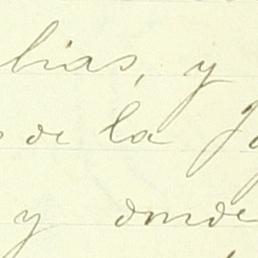 lias, y
de la
y donde